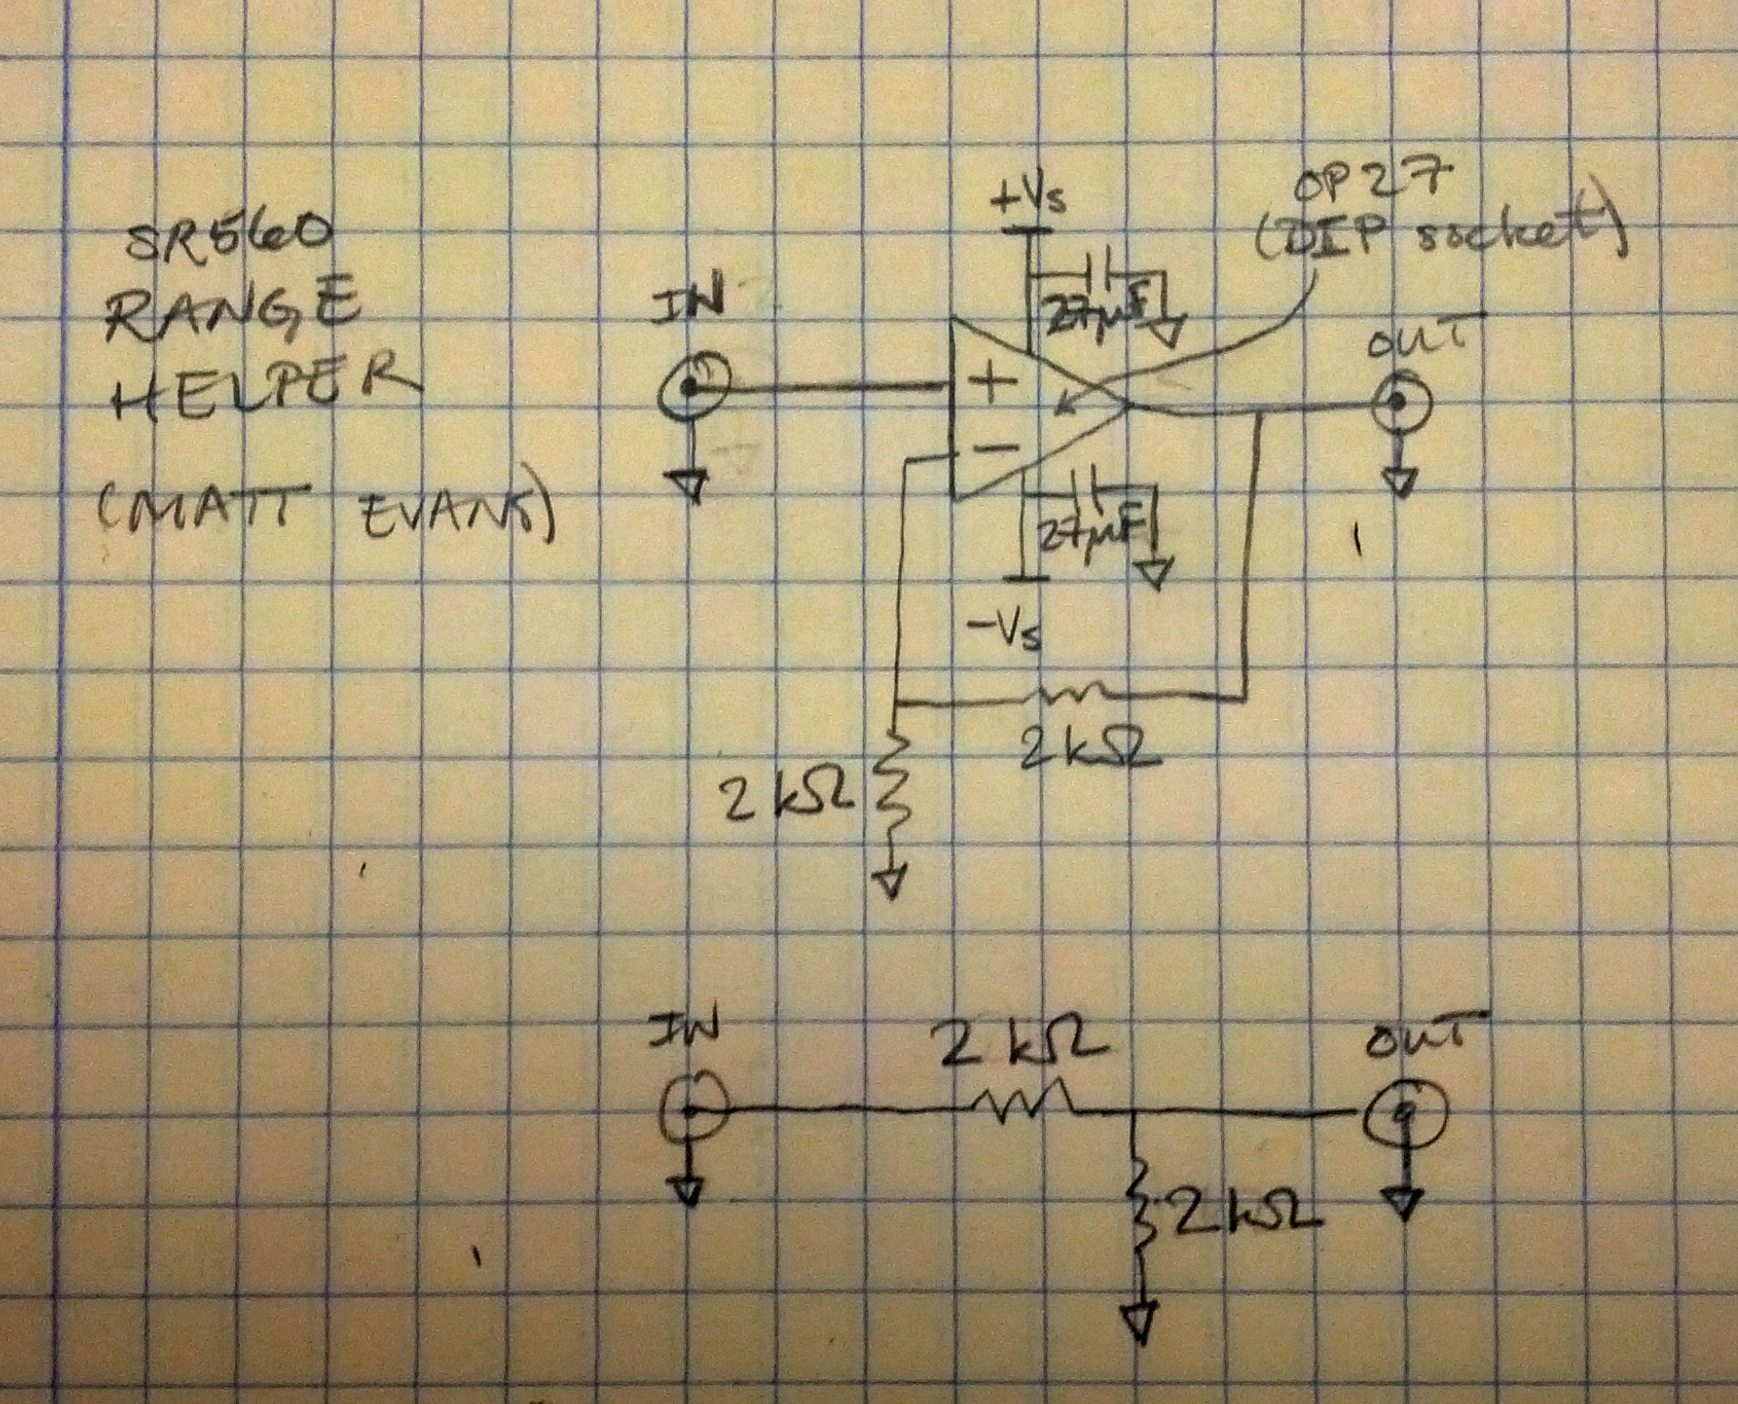 SR560
RANGE
HELPER
(MATT EVANS)
+Vs
OP27
(DIP socket)
IN
27µF
OUT
+
−
27µF
-Vs
2kΩ
2kΩ
IN
2kΩ
OUT
2kΩ